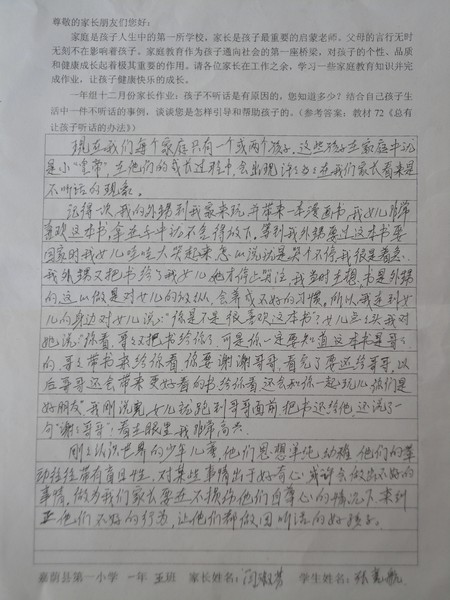 尊敬的家长朋友们您好：
家庭是孩子人生中的第一所学校，家长是孩子最重要的启蒙老师。父母的言行无时
无刻不在影响着孩子。家庭教育作为孩子通向社会的第一座桥梁，对孩子的个性、品质
和健康成长起着极其重要的作用。请各位家长在工作之余，学习一些家庭教育知识并完
成作业，让孩子健康快乐的成长。
一年组十二月份家长作业：孩子不听话是有原因的，您知道多少？结合自己孩子生
活中一件不听话的事例，谈谈您是怎样引导和帮助孩子的。（参考答案：教材 72《总有
让孩子听话的办法》）
现在我们每个家庭只有一个或两个孩子。这些孩子在家庭中就
是小"皇帝"，在他们的成长过程中，会出现许多在我们家长看来是
不听话的现象。
记得一次，我的外甥到我家来玩，并带来一本漫画书，我女儿非常
喜欢这本书，拿在手中访不舍得放下。等到我外甥要这本书要
回家时我女儿哇哇大哭起来，怎么说就是哭个不停，我很是着急。
我外甥又把书给了我女儿她才停止哭泣，我当时在想，书是外甥
的，这么做是对女儿的放纵，会养成不好的习惯，所以，我走到女
儿的身边对女儿说："你是不是很喜欢这本书"？女儿点点头，我对
她说："你看，哥哥把书给你了，可是你一定要知道这本书是哥哥
的，哥哥带书来给你看，你要谢谢哥哥，看完了要还给哥哥，以
后哥哥还会带来更好看的书给你看，还会和你一起玩儿，你们是
好朋友"。我刚说完，女儿就跑到哥哥面前，把书还给他，还说了一
句"谢谢哥哥"，看在眼里，我非常高兴。
刚刚认识世界的少年儿童，他们思想单纯、幼稚，他们的举
动往往带有盲目性，对某些事情出于好奇心，或许会做出不好的
事情，做为我们家长要在不损伤他们自尊心的情况下，来纠
正他们不好的行为，让他们都做回听话的好孩子。
嘉荫县第一小学 一年 五班 家长姓名： 闫淑芳 学生姓名： 张